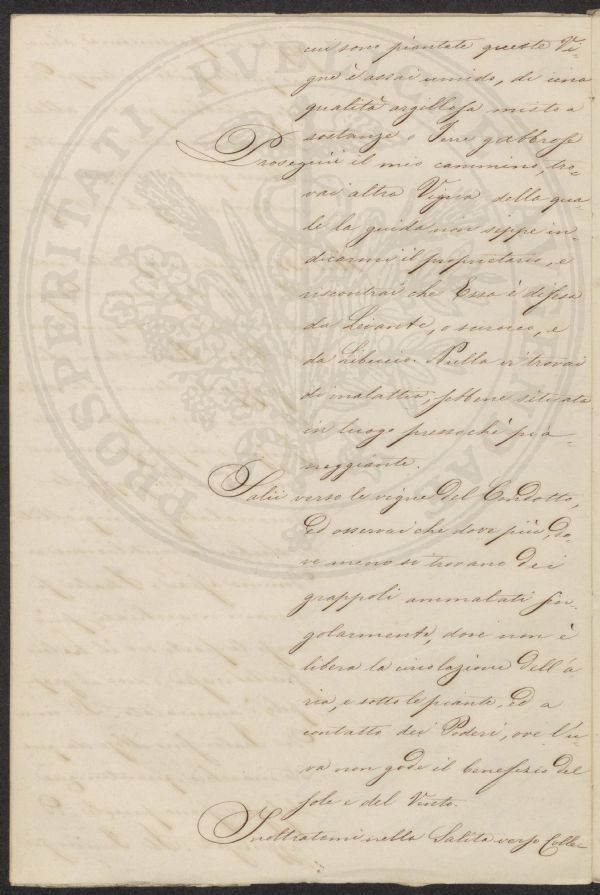 cui sono piantate queste Vi-
gne è assai umido, di una
qualità argillosa misto a
sostanze o Terre gabbrose
Proseguii il mio cammino, tro-
vai altra Vigna della qua-
le la guida non seppe in-
dicarmi il proprietario, e
riscontrai che Essa è difesa
da Levante, o scirocco, e
da Libeccio. Nulla vi trovai
di malattia, sebbene situata
in luogo pressoché pia-
neggiante.
Salii verso le vigne del Condotto,
ed osservai che dove più, do-
ve meno si trovano dei
grappoli ammalati sin-
golarmente, dove non è
libera la circolazione dell'a
ria, e sotto le piante, ed a
contatto dei Poderi, ove l'u-
va non gode il benefizio del
sole e del Vento.
Inoltratomi nella Salita verso Colle-
PROSPERITATI PUBLICAE